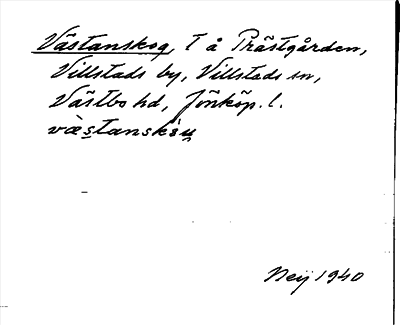 Västanskog, T å Prästgården,
Villstads by, Villstads sn,
Västbo hd, Jönköp. l.
væ̀s̮tanskò̮u̮
Neij 1940